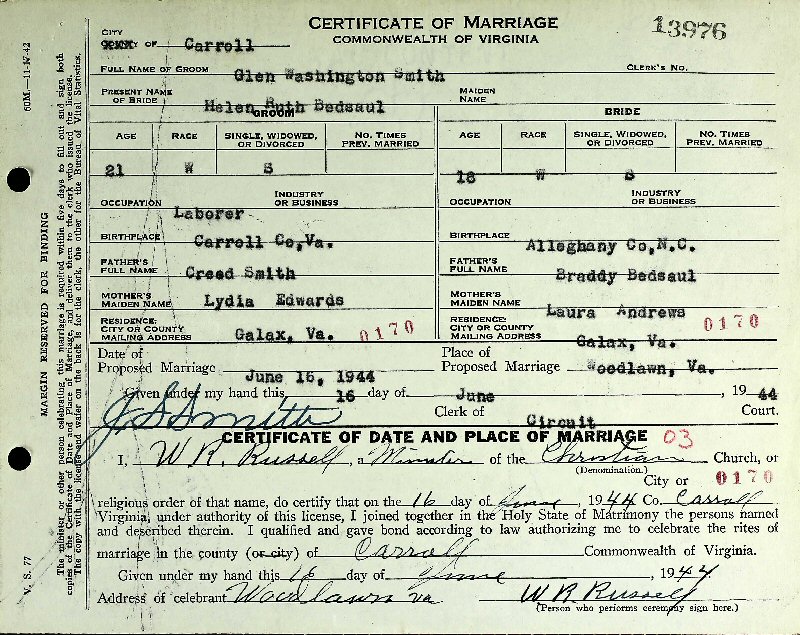 CERTIFICATE OF MARRIAGE
COMMONWEALTH OF VIRGINIA
13976
CITY
OF Carroll
FULL NAME OF GROOM Glen Washington Smith CLERK'S NO.
PRESENT NAME OF BRIDE Helen Ruth Bedsaul MAIDEN NAME
GROOM BRIDE
AGE RACE SINGLE, WIDOWED, OR DIVORCED NO. TIMES PREV. MARRIED AGE RACE SINGLE, WIDOWED, OR DIVORCED NO. TIMES PREV. MARRIED
21 W S 18 W S
OCCUPATION Laborer INDUSTRY OR BUSINESS OCCUPATION INDUSTRY OR BUSINESS
BIRTHPLACE Carroll Co,Va. BIRTHPLACE Alleghany Co,N.C.
FATHER'S FULL NAME Creed Smith FATHER'S FULL NAME Braddy Bedsaul
MOTHER'S MAIDEN NAME Lydia Edwards MOTHER'S MAIDEN NAME Laura Andrews
RESIDENCE: CITY OR COUNTY MAILING ADDRESS Galax, Va. 0170 RESIDENCE: CITY OR COUNTY MAILING ADDRESS Galax, Va. 0170
Date of Proposed Marriage June 16, 1944 Place of Proposed Marriage Woodlawn, Va.
Given under my hand this 16 day of June, 1944
Clerk of Circuit Court.
CERTIFICATE OF DATE AND PLACE OF MARRIAGE 03
I, W. R. Russell, a Minister of the Christian Church, or
(Denomination.)
City or 0170
religious order of that name, do certify that on the 16 day of June, 1944 Co. Carroll
Virginia, under authority of this license, I joined together in the Holy State of Matrimony the persons named
and described therein. I qualified and gave bond according to law authorizing me to celebrate the rites of
marriage in the county (or city) of Carroll Commonwealth of Virginia.
Given under my hand this 16 day of June, 1944
Address of celebrant Woodlawn Va W R Russell
(Person who performs ceremony sign here.)
60M—11-17-42
MARGIN RESERVED FOR BINDING
The minister or other person celebrating this marriage is required within five days to fill out and sign both
copies of the Certificate of Date and Place of Marriage, and deliver them to the clerk who issued the license.
The copy with the license and waiver on the back is for the clerk, the other for the Bureau of Vital Statistics.
V. S. 77